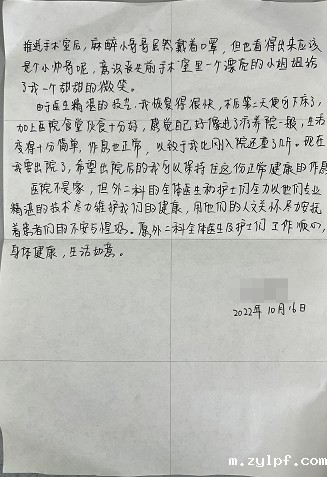 推进手术室后，麻醉小哥哥虽然戴着口罩，但也看得出来应该
是个小帅哥呢，离谈最是前手术室里一个漂亮的小姐姐给
了我一个甜甜的微笑。
由于医生精湛的技艺，我恢复得很快，术后第三天便可下床了，
加上医院食堂伙食十分好，感觉自己好像进了疗养院一般，生活
变得十分简单，作息也正常，以致于我比刚入院还重了几斤。现在
我要出院了，希望出院后的我可以保持住这份正常健康的作息
医院不是家，但外二科的全体医生和护士们全力以他们专业
精湛的技术尽力维护我们的健康，用他们的人文关怀尽力安抚
着患者们的不安与惶恐。愿外二科全体医生及护士们工作顺心，
身体健康，生活如意。
2022年10月16日
m.zylpf.com